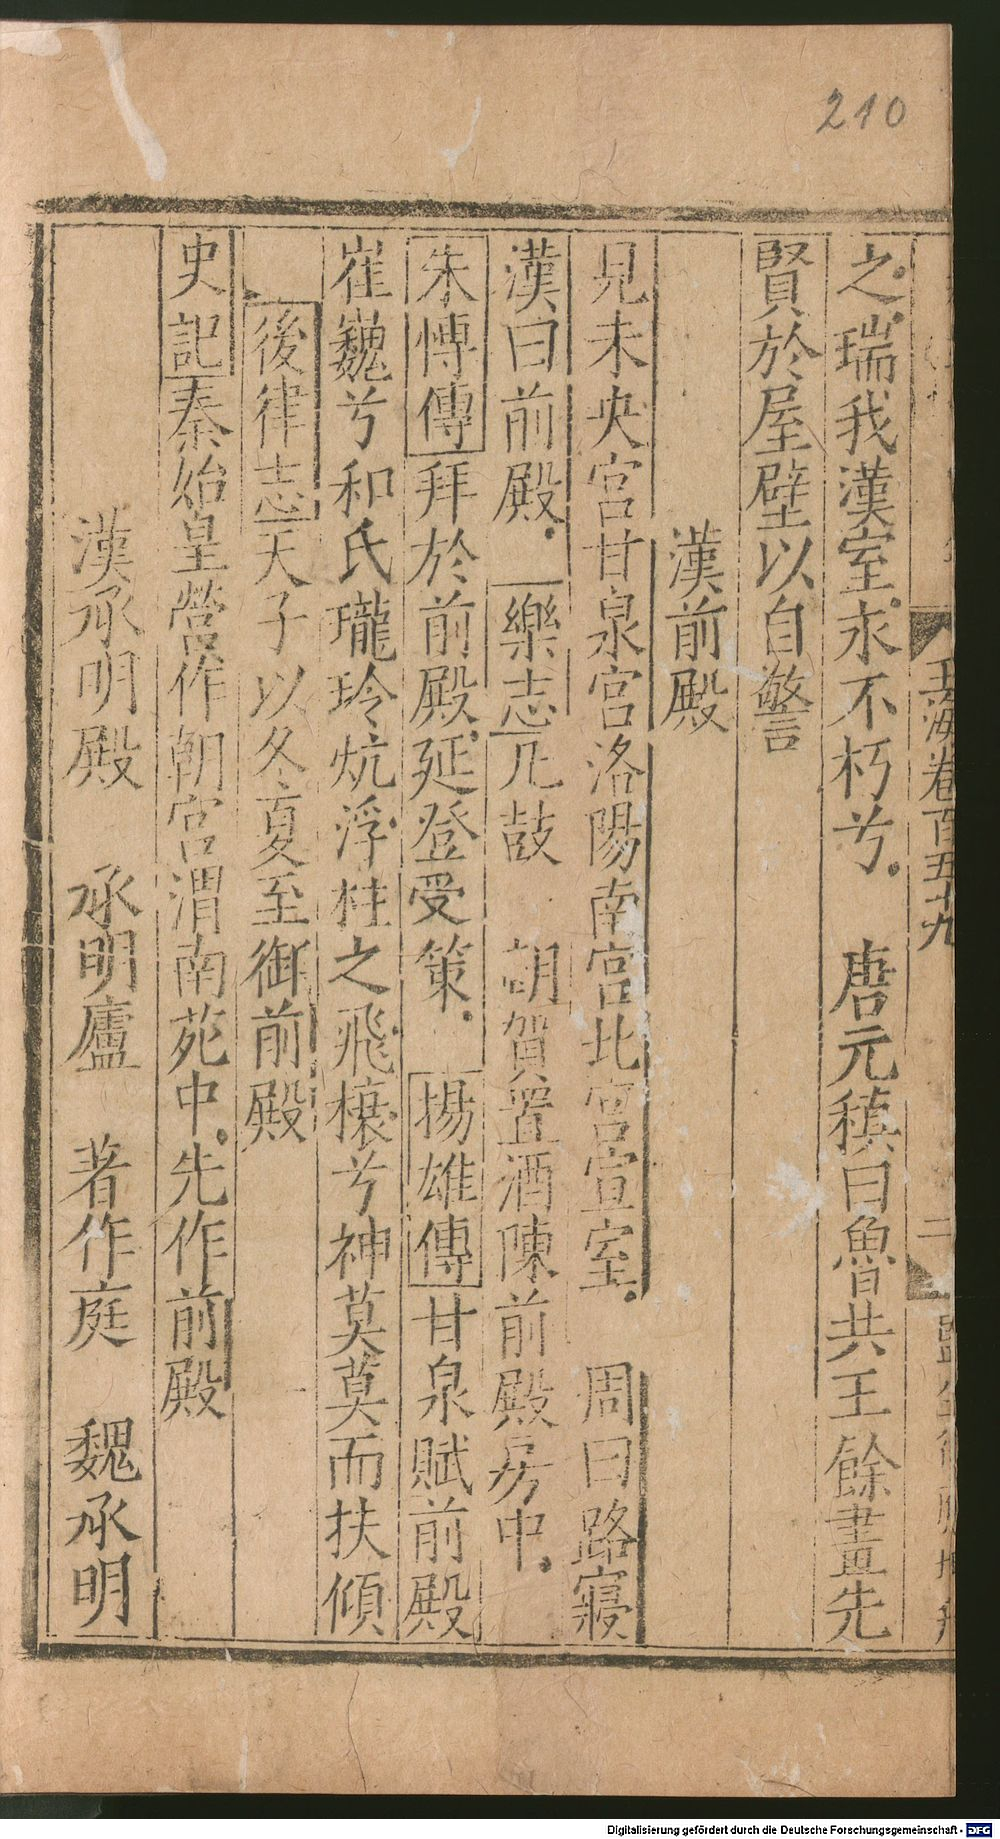 210
玉海卷百五十九
二
之瑞我漢室永不朽兮 唐元稹曰魯共王餘畫先
賢於屋壁以自警
漢前殿
見未央宮甘泉宮洛陽南宮北宮宣室 周曰路寢
漢曰前殿 樂志凡鼓 朝賀置酒陳前殿房中
朱博傳拜於前殿延登受策 揚雄傳甘泉賦前殿
崔巍兮和氏瓏玲炕浮柱之飛榱兮神莫莫而扶傾
後律志天子以冬夏至御前殿
史記秦始皇營作朝宮渭南苑中先作前殿
漢承明殿 承明廬 著作庭 魏承明
Digitalisierung gefördert durch die Deutsche Forschungsgemeinschaft - DFG